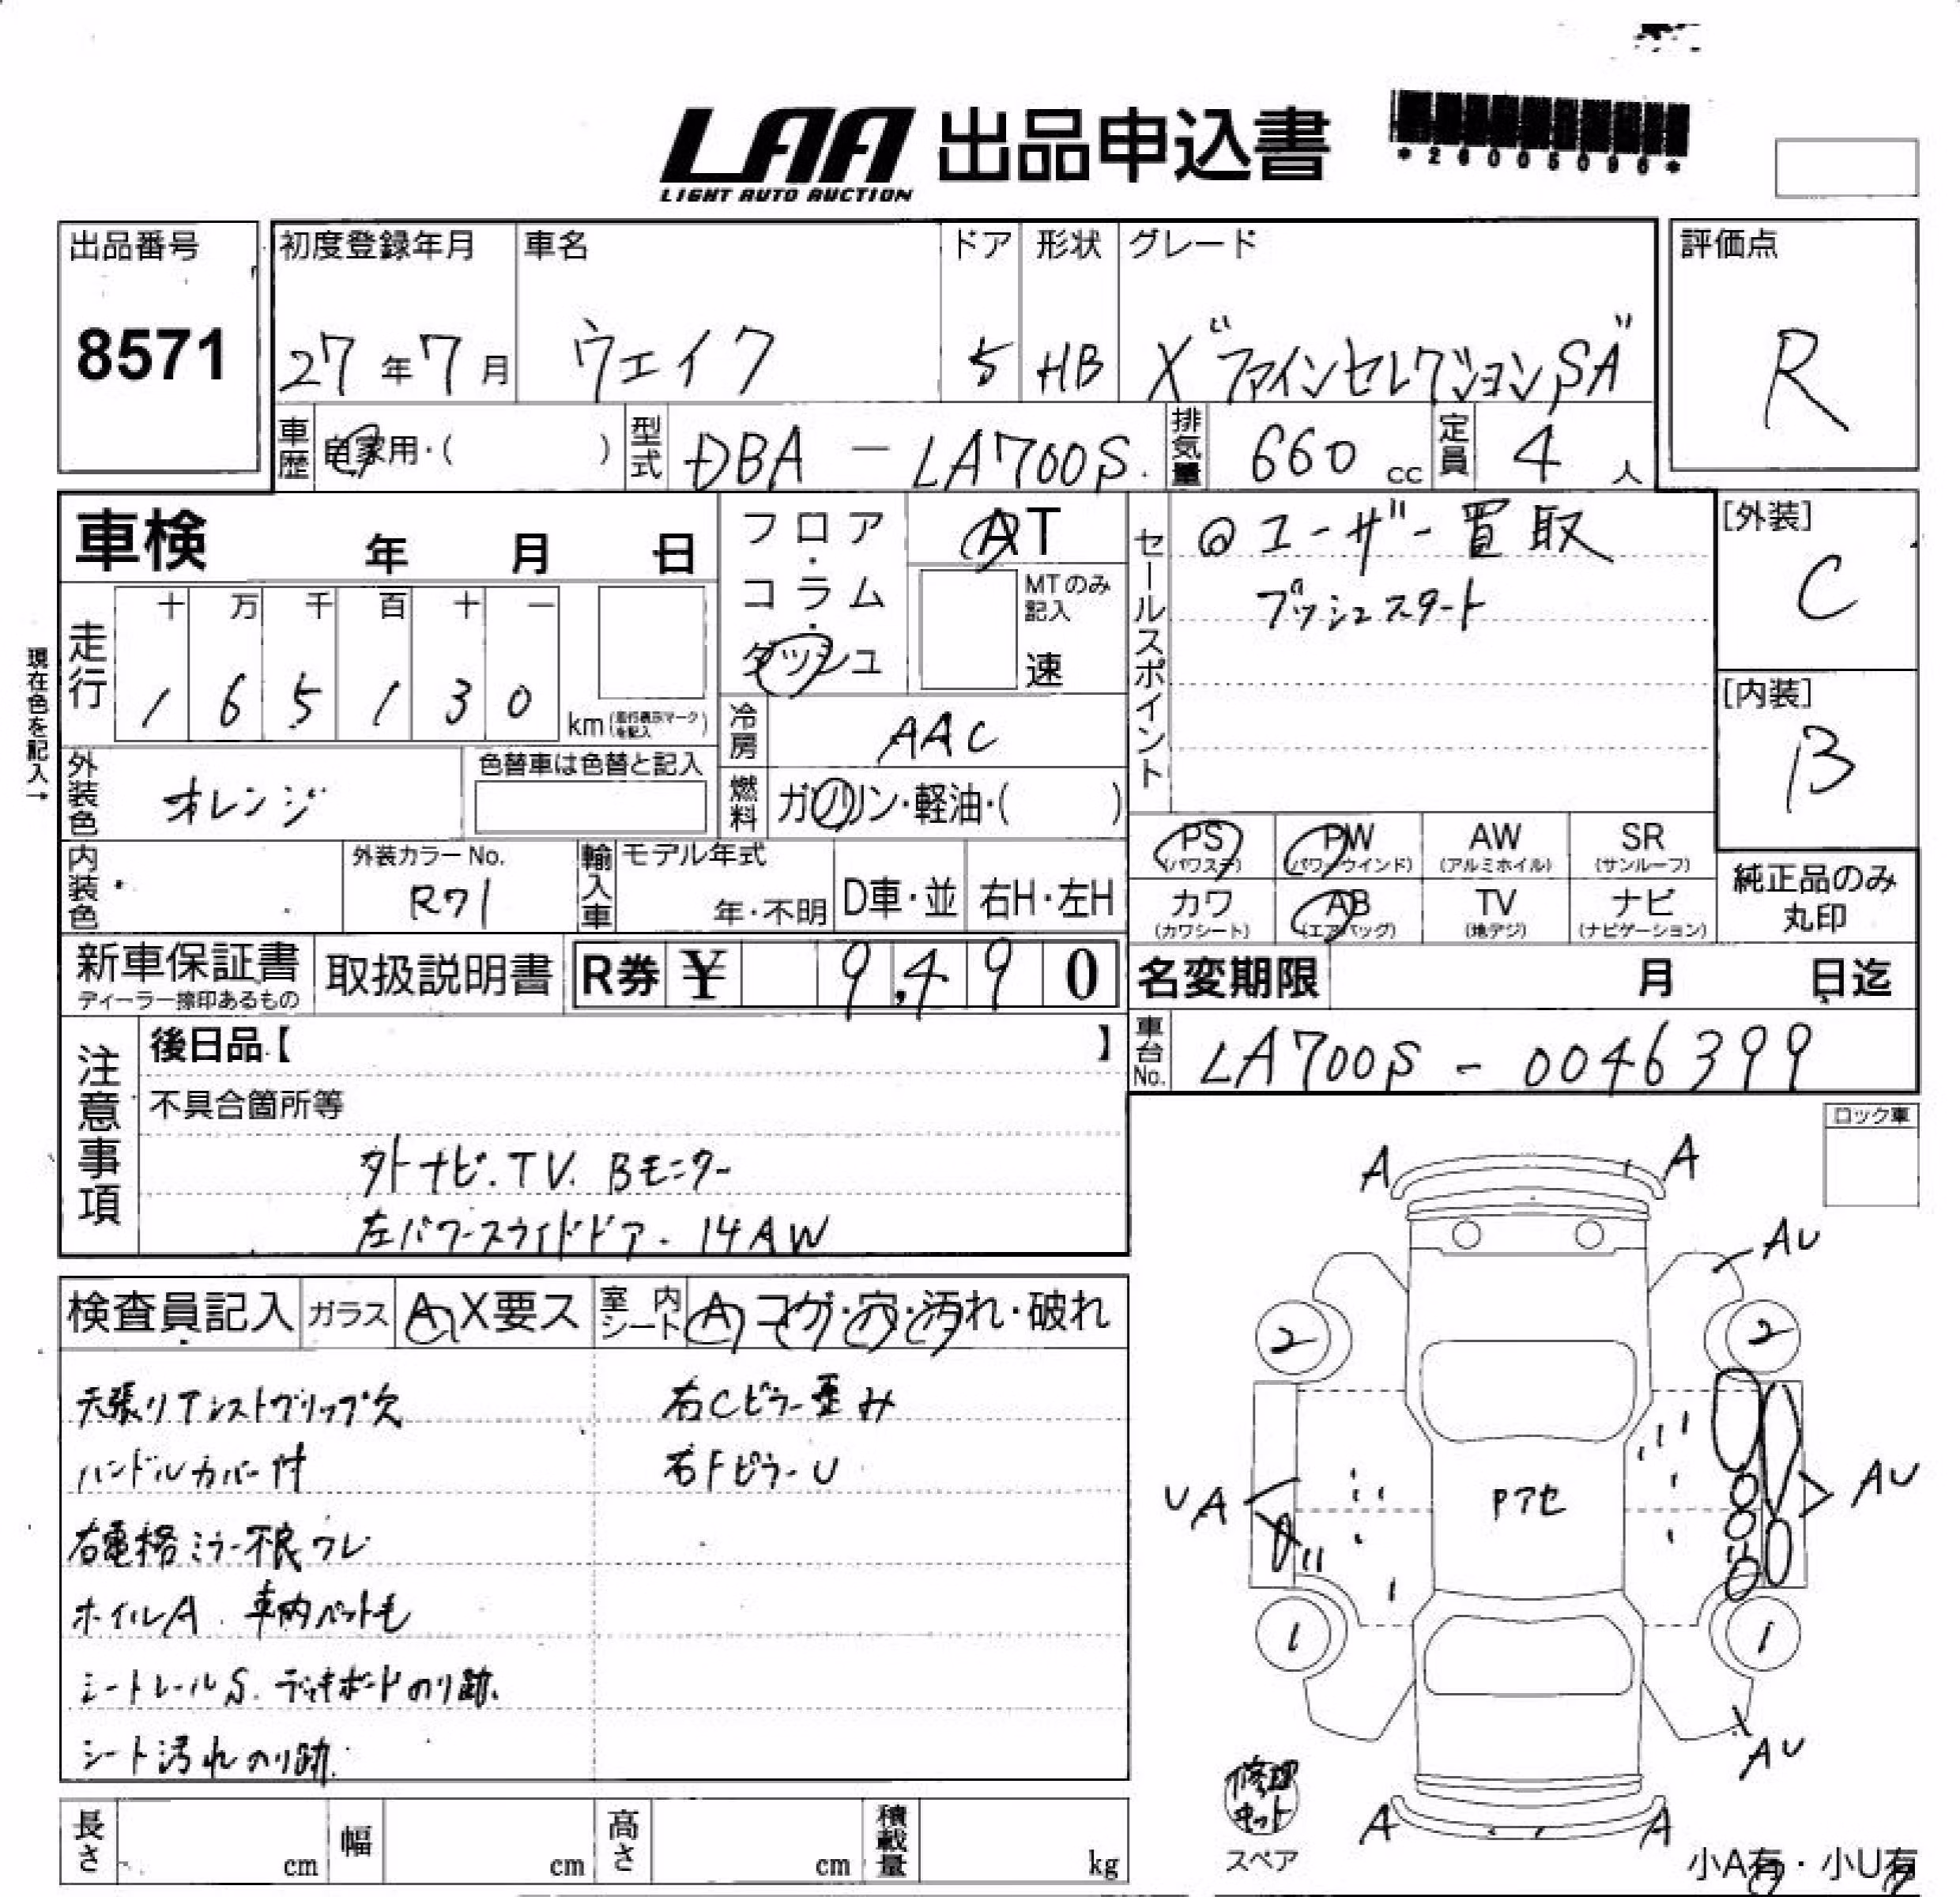 LAA 出品申込書
LIGHT AUTO AUCTION
*26005096*
出品番号
8571
初度登録年月
27年7月
車名
ウェイク
ドア
5
形状
HB
グレード
X "ファインセレクションSA"
評価点
R
車歴 自家用・( )
型式 DBA - LA700S
排気量 660 cc
定員 4 人
車検 年 月 日
フロア・コラム・ダッシュ
AT
MTのみ記入
速
セールスポイント
@ユーザー買取
プッシュスタート
[外装]
C
[内装]
B
現在色を記入→
走行
十 万 千 百 十 一
1 6 5 1 3 0
km(走行表示マークを記入)
冷房 AAC
外装色 オレンジ
色替車は色替と記入
燃料 ガソリン・軽油・( )
内装色
外装カラーNo.
R71
輸入車 モデル年式
年・不明
D車・並
右H・左H
PS (パワステ)
PW (パワーウインド)
AW (アルミホイル)
SR (サンルーフ)
カワ (カワシート)
AB (エアバッグ)
TV (地デジ)
ナビ (ナビゲーション)
純正品のみ丸印
新車保証書
ディーラー捺印あるもの
取扱説明書
R券 ¥ 9,490
名変期限 月 日迄
車台No. LA700S - 0046399
注意事項
後日品【 】
不具合箇所等
外ナビ.TV.Bモニター
左パワースライドドア. 14AW
ロック車
検査員記入
ガラス A X要ス
室内シート A コゲ・穴・汚れ・破れ
天張りアシストグリップ欠
ハンドルカバー付
右電格ミラー不良ワレ
ホイルA. 車内ペット毛
シートレールS. デッキボードのり跡.
シート汚れのり跡.
右Cピラー歪み
右FピラーU
A A
AU
2 2
UA
Pアセ
AU
1 1
AU
A A
修理キット
スペア
小A有・小U有
長さ cm
幅 cm
高さ cm
積載量 kg